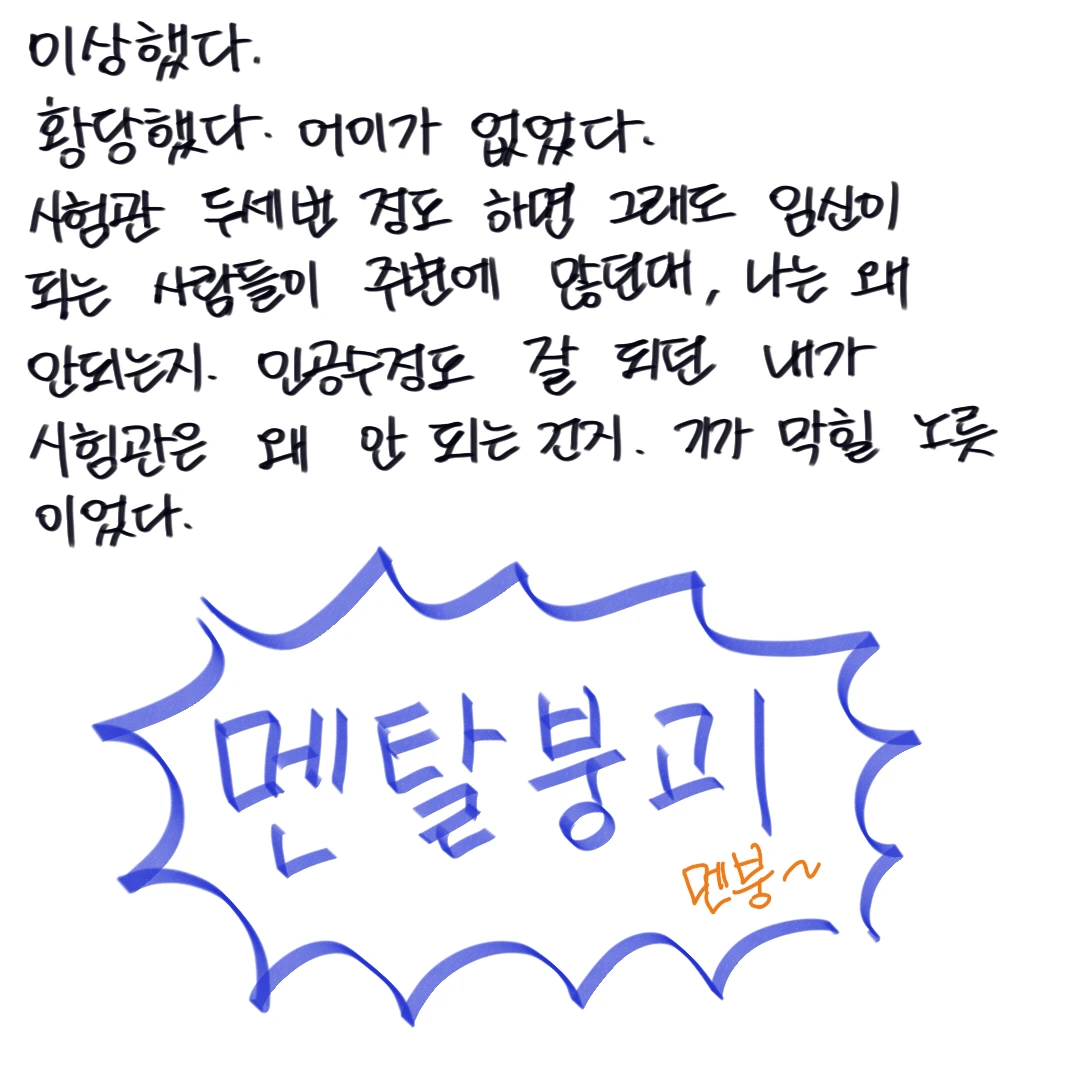 이상했다.
황당했다. 어이가 없었다.
시험관 두세번 정도 하면 그래도 임신이
되는 사람들이 주변에 많던대, 나는 왜
안되는지. 인공수정도 잘 되던 내가
시험관은 왜 안 되는 건지. 기가 막힐 노릇
이었다.
멘탈붕괴
멘붕~